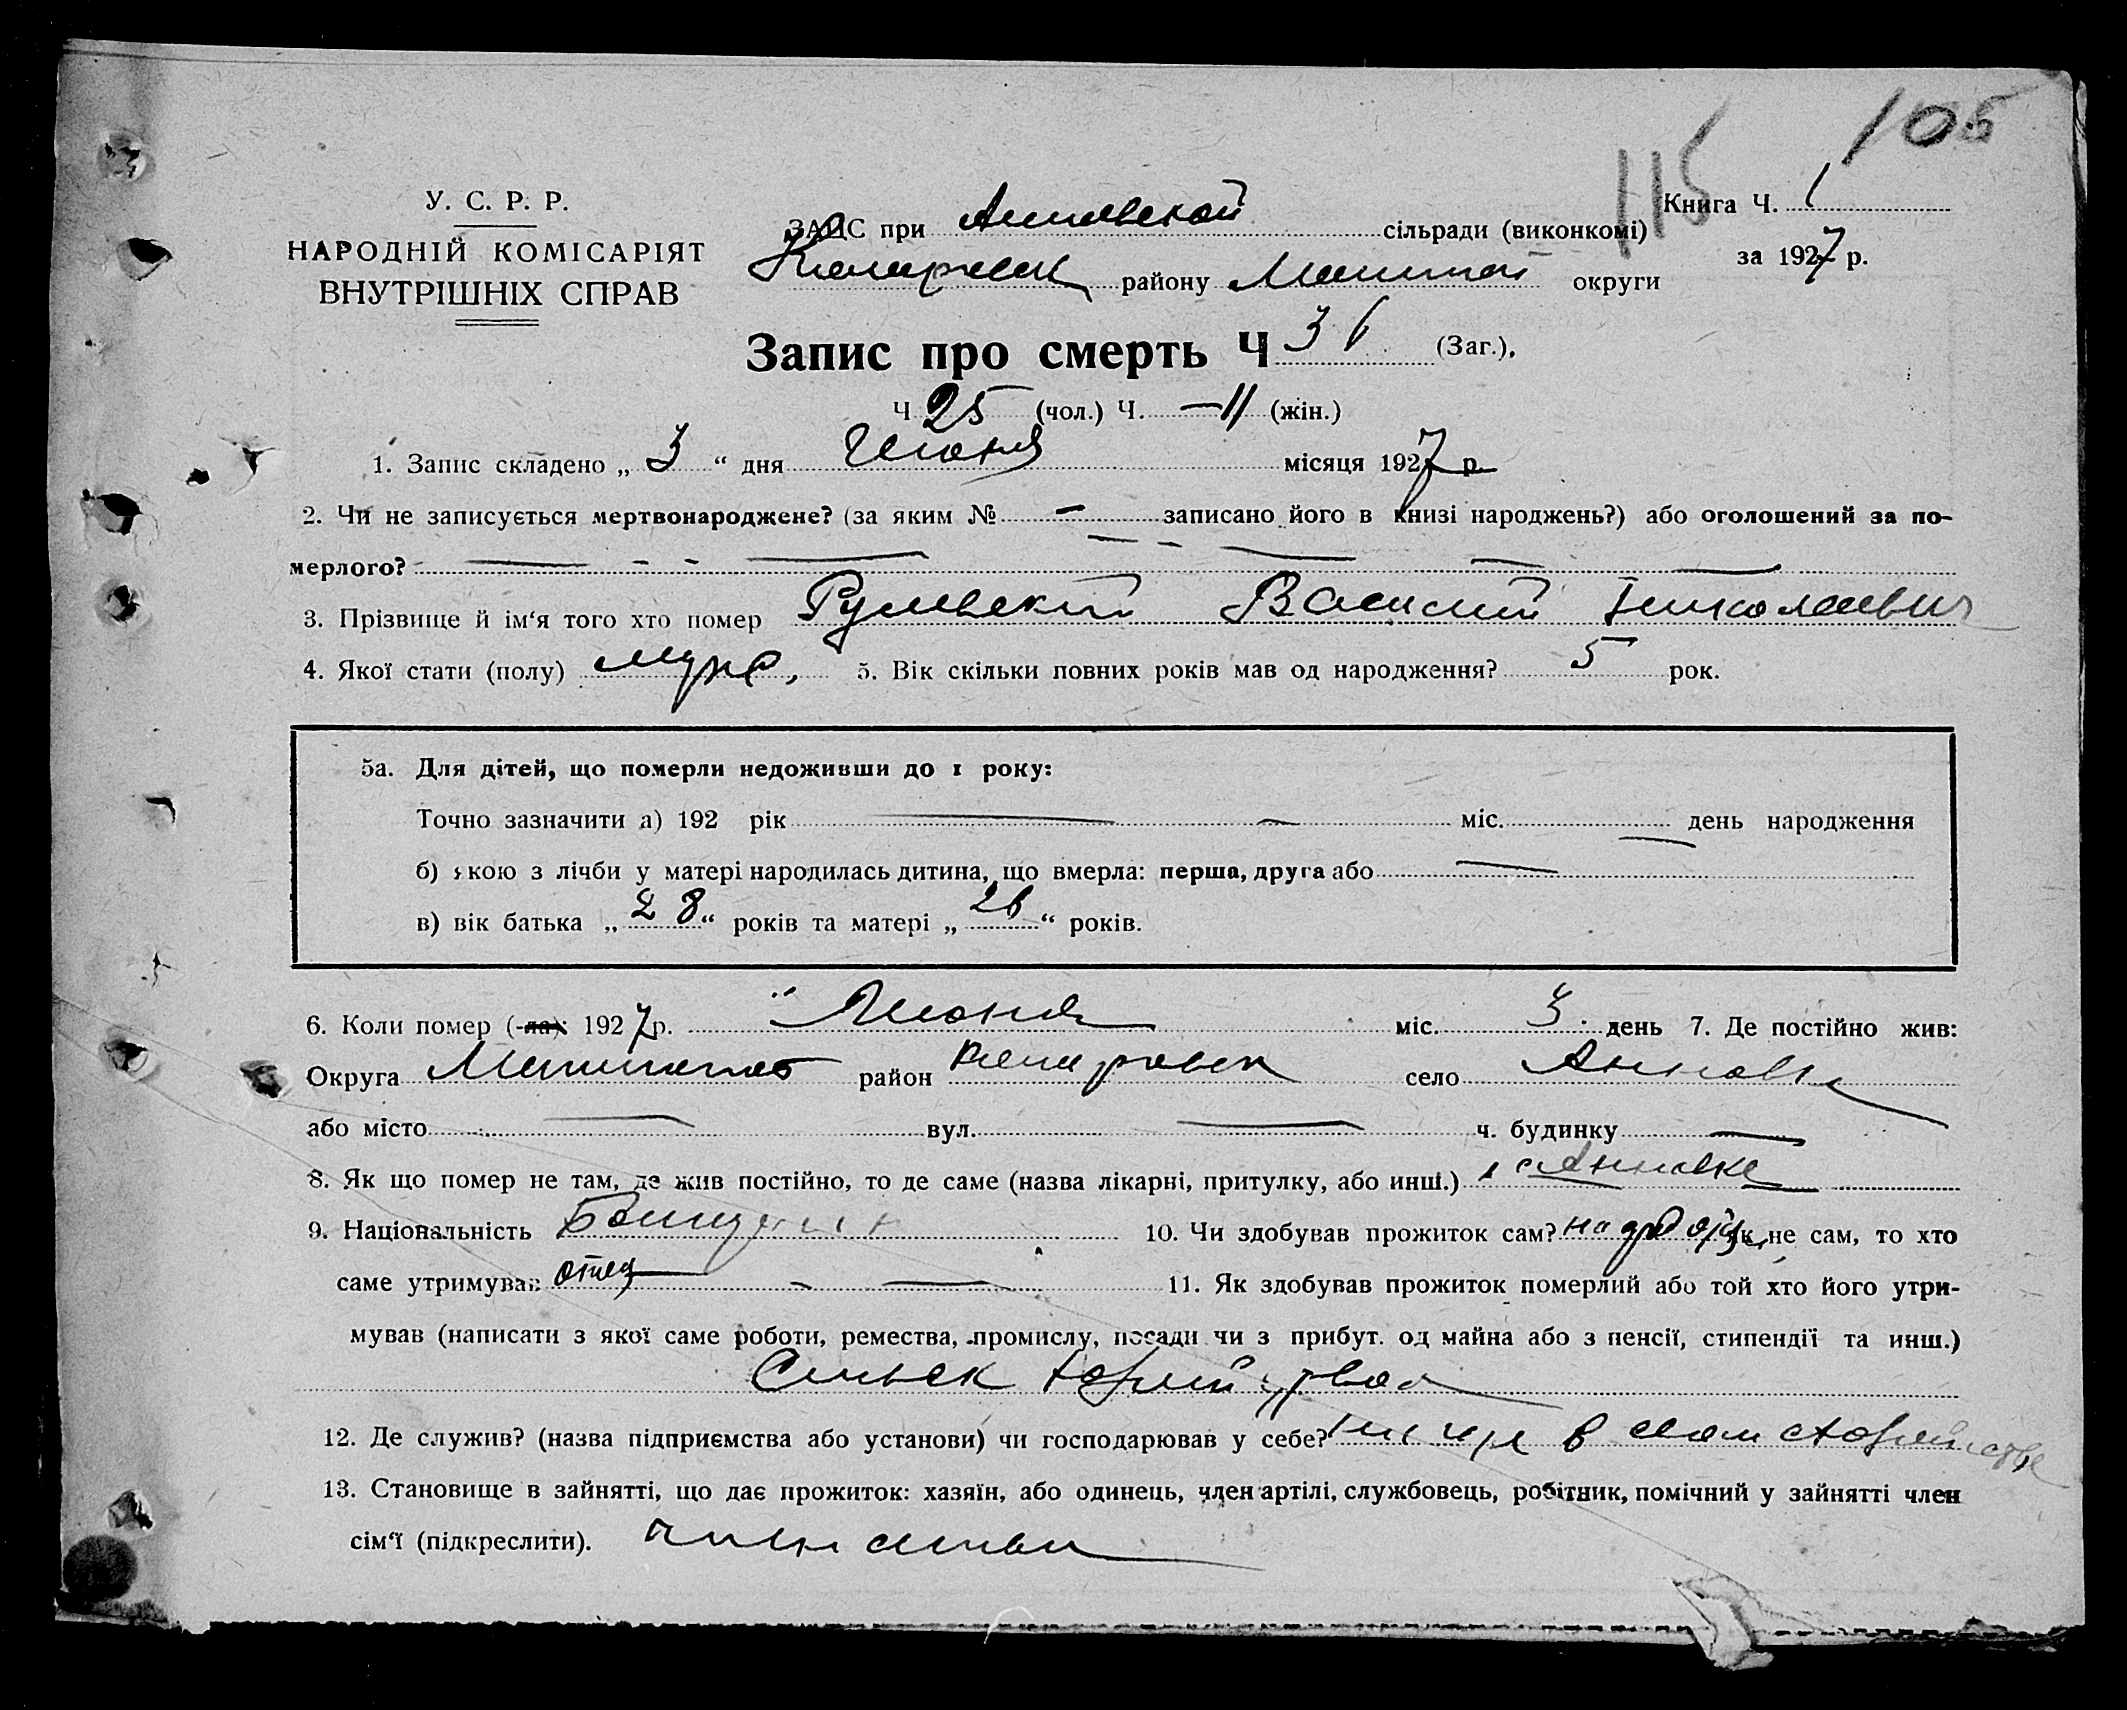 105
115
У. С. Р. Р.
НАРОДНІЙ КОМІСАРІЯТ
ВНУТРІШНІХ СПРАВ
ЗАГС при Анновской сільради (виконкомі)
Коларовск району Мелитоп округи
Книга Ч. 1
за 1927 р.
Запис про смерть Ч 36 (Заг.),
Ч 25 (чол.) Ч. — 11 (жін.)
1. Запис складено „ 3 “ дня Июня місяця 1927 р.
2. Чи не записується мертвонароджене? (за яким № — записано його в книзі народжень?) або оголошений за по-
мерлого?
3. Прізвище й ім‘я того хто помер Василий Николаевич
4. Якої стати (полу) муж, 5. Вік скільки повних років мав од народження? 5 рок.
5а. Для дітей, що померли недоживши до 1 року:
Точно зазначити а) 192 рік — міс. — день народження
б) якою з лічби у матері народилась дитина, що вмерла: перша, друга або —
в) вік батька „ 28 “ років та матері „ 26 “ років.
6. Коли помер (-ла): 1927 р. Июня міс. 3 день 7. Де постійно жив:
Округа район Коларовск село Анновка
або місто — вул. — ч. будинку —
8. Як що помер не там, де жив постійно, то де саме (назва лікарні, притулку, або инші.) с Анновка
9. Національність 10. Чи здобував прожиток сам? Як не сам, то хто
саме утримував отец — 11. Як здобував прожиток померлий або той хто його утри-
мував (написати з якої саме роботи, ремества, промислу, посади чи з прибут. од майна або з пенсії, стипендії та инш.)
Сельск
12. Де служив? (назва підприємства або установи) чи господарював у себе? в
13. Становище в зайнятті, що дає прожиток: хазяїн, або одинець, член артілі, службовець, робітник, помічний у зайнятті член
сім‘ї (підкреслити). член семьи